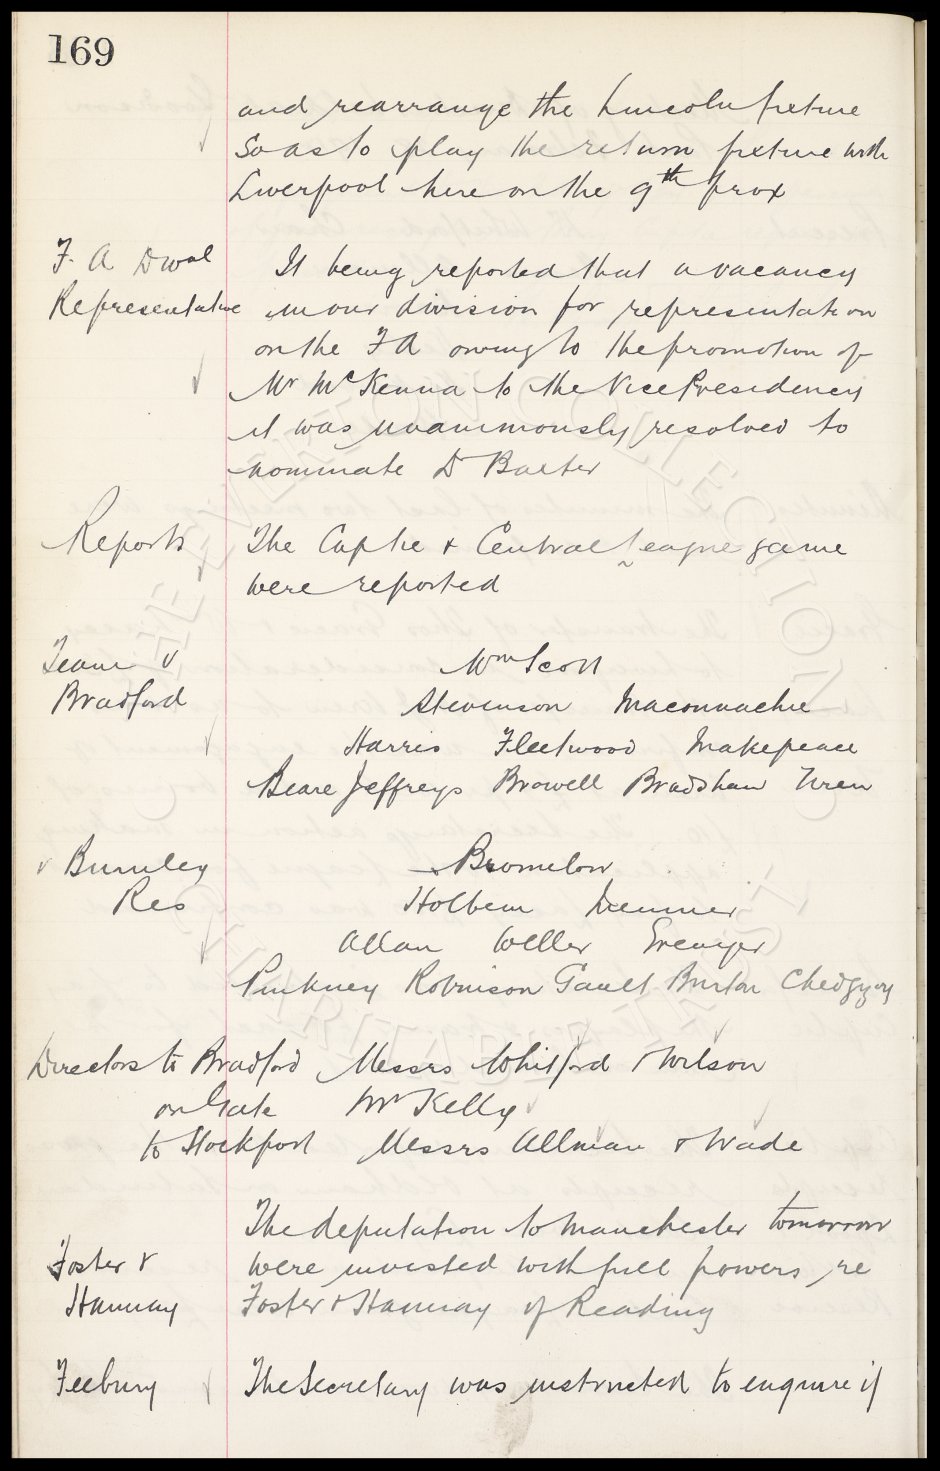 169
and rearrange the Lincoln fixture
so as to play the return fixture with
Liverpool here on the 9th prox
F. A Dival
Representative
It being reported that a vacancy
in our division for representation
on the F A owing to the promotion of
Mr McKenna to the Vice Presidency
it was unanimously resolved to
nominate Dr Baxter
Reports
The Captie & Central League game
were reported
Team v
Bradford
Wm Scott
Stevenson Maconnachie
Harris Fleetwood Makepeace
Beare Jeffreys Browell Bradshaw Uren
v Burnley
Res
Bromelow
Holbem Simmer
Allan Weller Grenyer
Pinkney Robinson Gault Burton Chedgzoy
Directors to Bradford Messrs Whitford & Wilson
on Gate Mr Kelly
to Stockport Messrs Allman & Wade
Foster &
Hannay
The deputation to Manchester tomorrow
were invested with full powers, re
Foster & Hannay of Reading
Feebury
The Secretary was instructed to enquire if
THE EVERTON COLLECTION
CHARITABLE TRUST